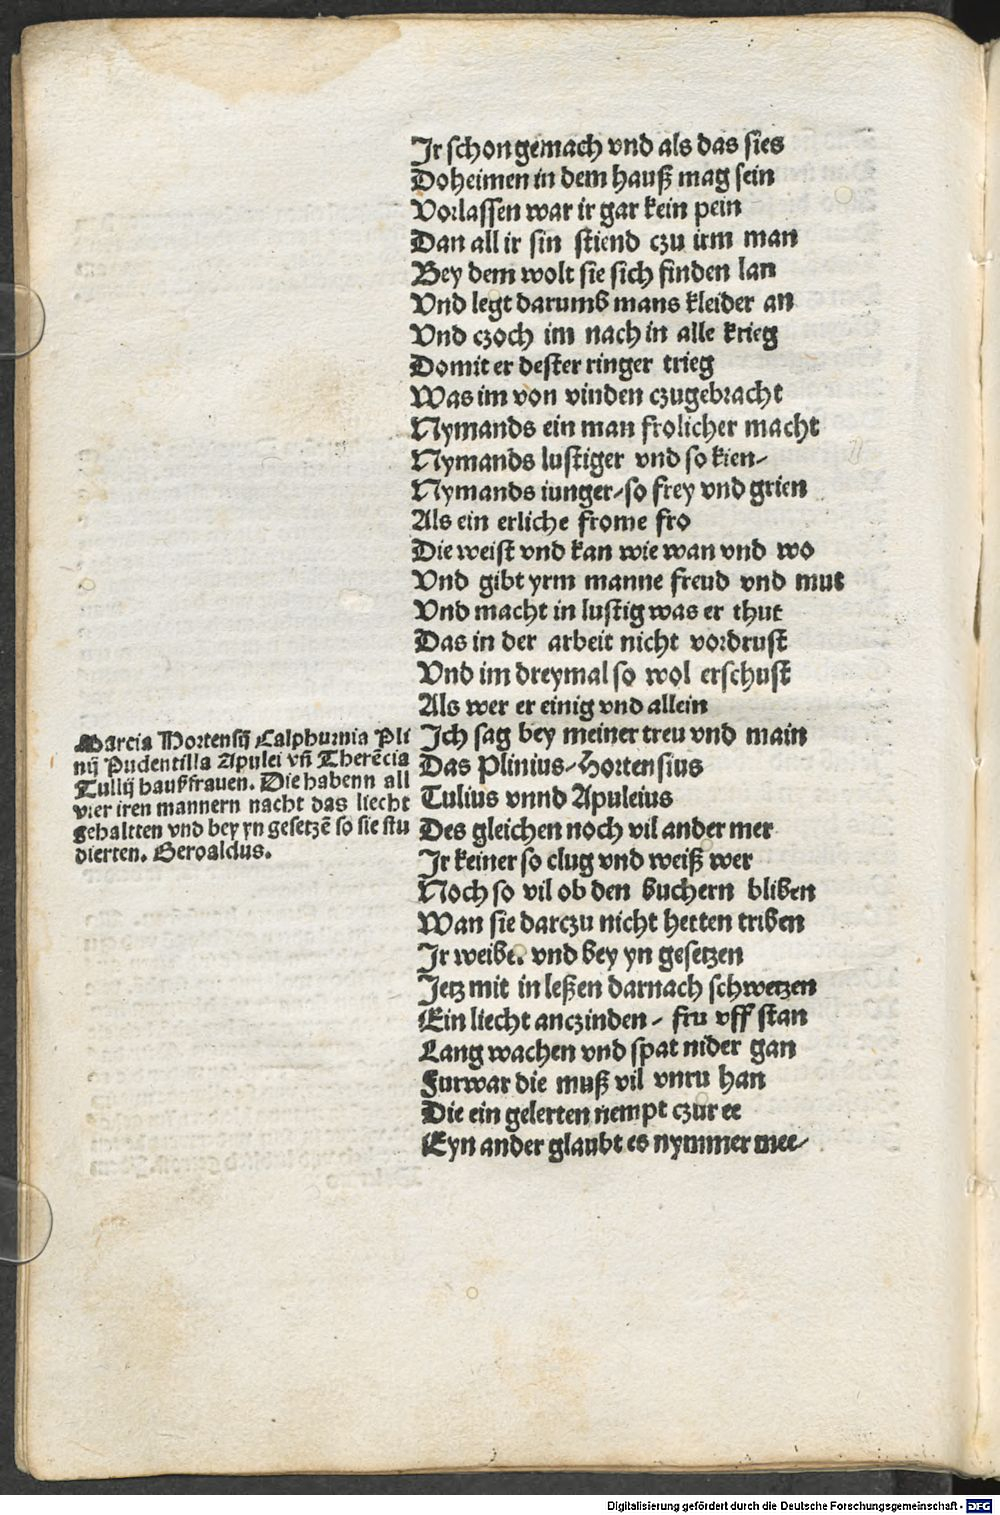 Jr schon gemach vnd als das sies
Doheimen in dem hauß mag sein
Vorlassen war ir gar kein pein
Dan all ir sin stiend czu irm man
Bey dem wolt sie sich finden lan
Vnd legt darumb mans kleider an
Vnd czoch im nach in alle krieg
Domit er dester ringer trieg
Was im von vinden czugebracht
Nymands ein man frolicher macht
Nymands lustiger vnd so kien/
Nymands iunger/so frey vnd grien
Als ein erliche frome fro
Die weist vnd kan wie wan vnd wo
Vnd gibt yrm manne freud vnd mut
Vnd macht in lustig was er thut
Das in der arbeit nicht vordrust
Vnd im dreymal so wol erschust
Als wer er einig vnd allein
Marcia Hortensij Calphurnia Pli
nij Pudentilla Apulei vñ Therẽcia
Tullij haußfrauen. Die habenn all
vier iren mannern nacht das liecht
gehaltten vnd bey yn gesetzẽ so sie stu
dierten. Beroaldus.
Jch sag bey meiner treu vnd main
Das Plinius/Hortensius
Tulius vnnd Apuleius
Des gleichen noch vil ander mer
Jr keiner so clug vnd weiß wer
Noch so vil ob den buchern bliben
Wan sie darczu nicht hetten triben
Jr weiber vnd bey yn gesetzen
Jetz mit in leßen darnach schwetzen
Ein liecht anczinden / fru vff stan
Lang wachen vnd spat nider gan
Furwar die muß vil vnru han
Die ein gelerten nempt czur ee
Eyn ander glaubt es nymmer mee/
Digitalisierung gefördert durch die Deutsche Forschungsgemeinschaft - DFG